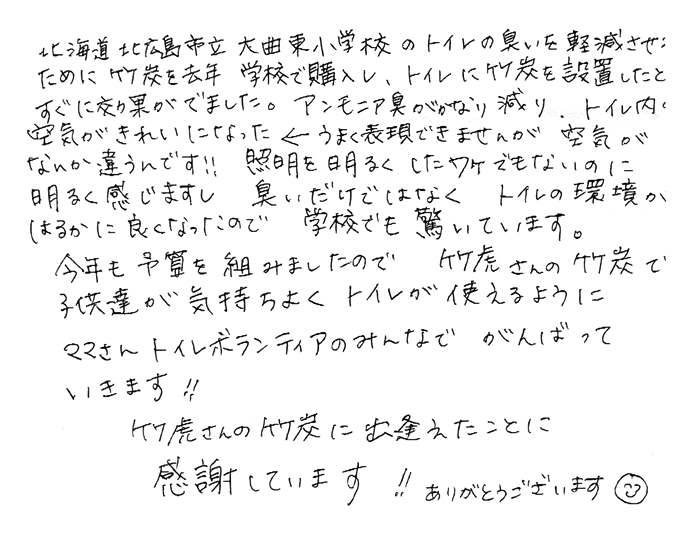 北海道 北広島市立 大曲東小学校 のトイレの臭いを軽減させ
ために 竹炭を去年 学校で購入し、トイレに竹炭を設置したと
すぐに効果がでました。アンモニア臭がかなり減り、トイレ内
空気がきれいになった ← うまく表現できませんが 空気が
なんか違うんです!! 照明を明るくしたワケでもないのに
明るく感じますし 臭いだけではなく トイレの環境が
はるかに良くなったので 学校でも驚いています。
今年も予算を組みましたので 竹虎さんの竹炭で
子供達が気持ちよくトイレが使えるように
ママさんトイレボランティアのみんなで がんばって
いきます!!
竹虎さんの竹炭に出逢えたことに
感謝しています!! ありがとうございます